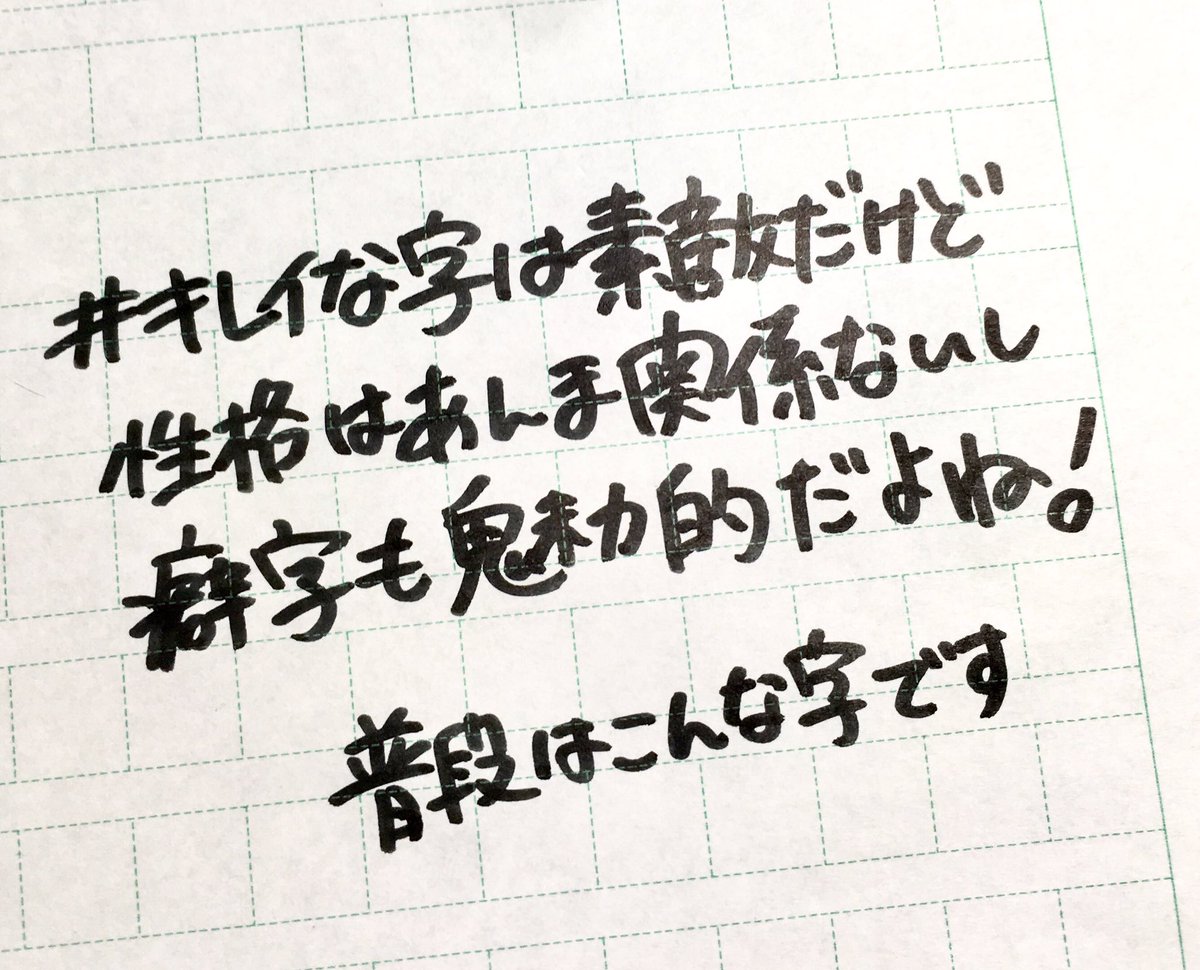 #キレイな字は素敵だけど
性格はあんま関係ないし
癖字も魅力的だよね!
普段はこんな字です